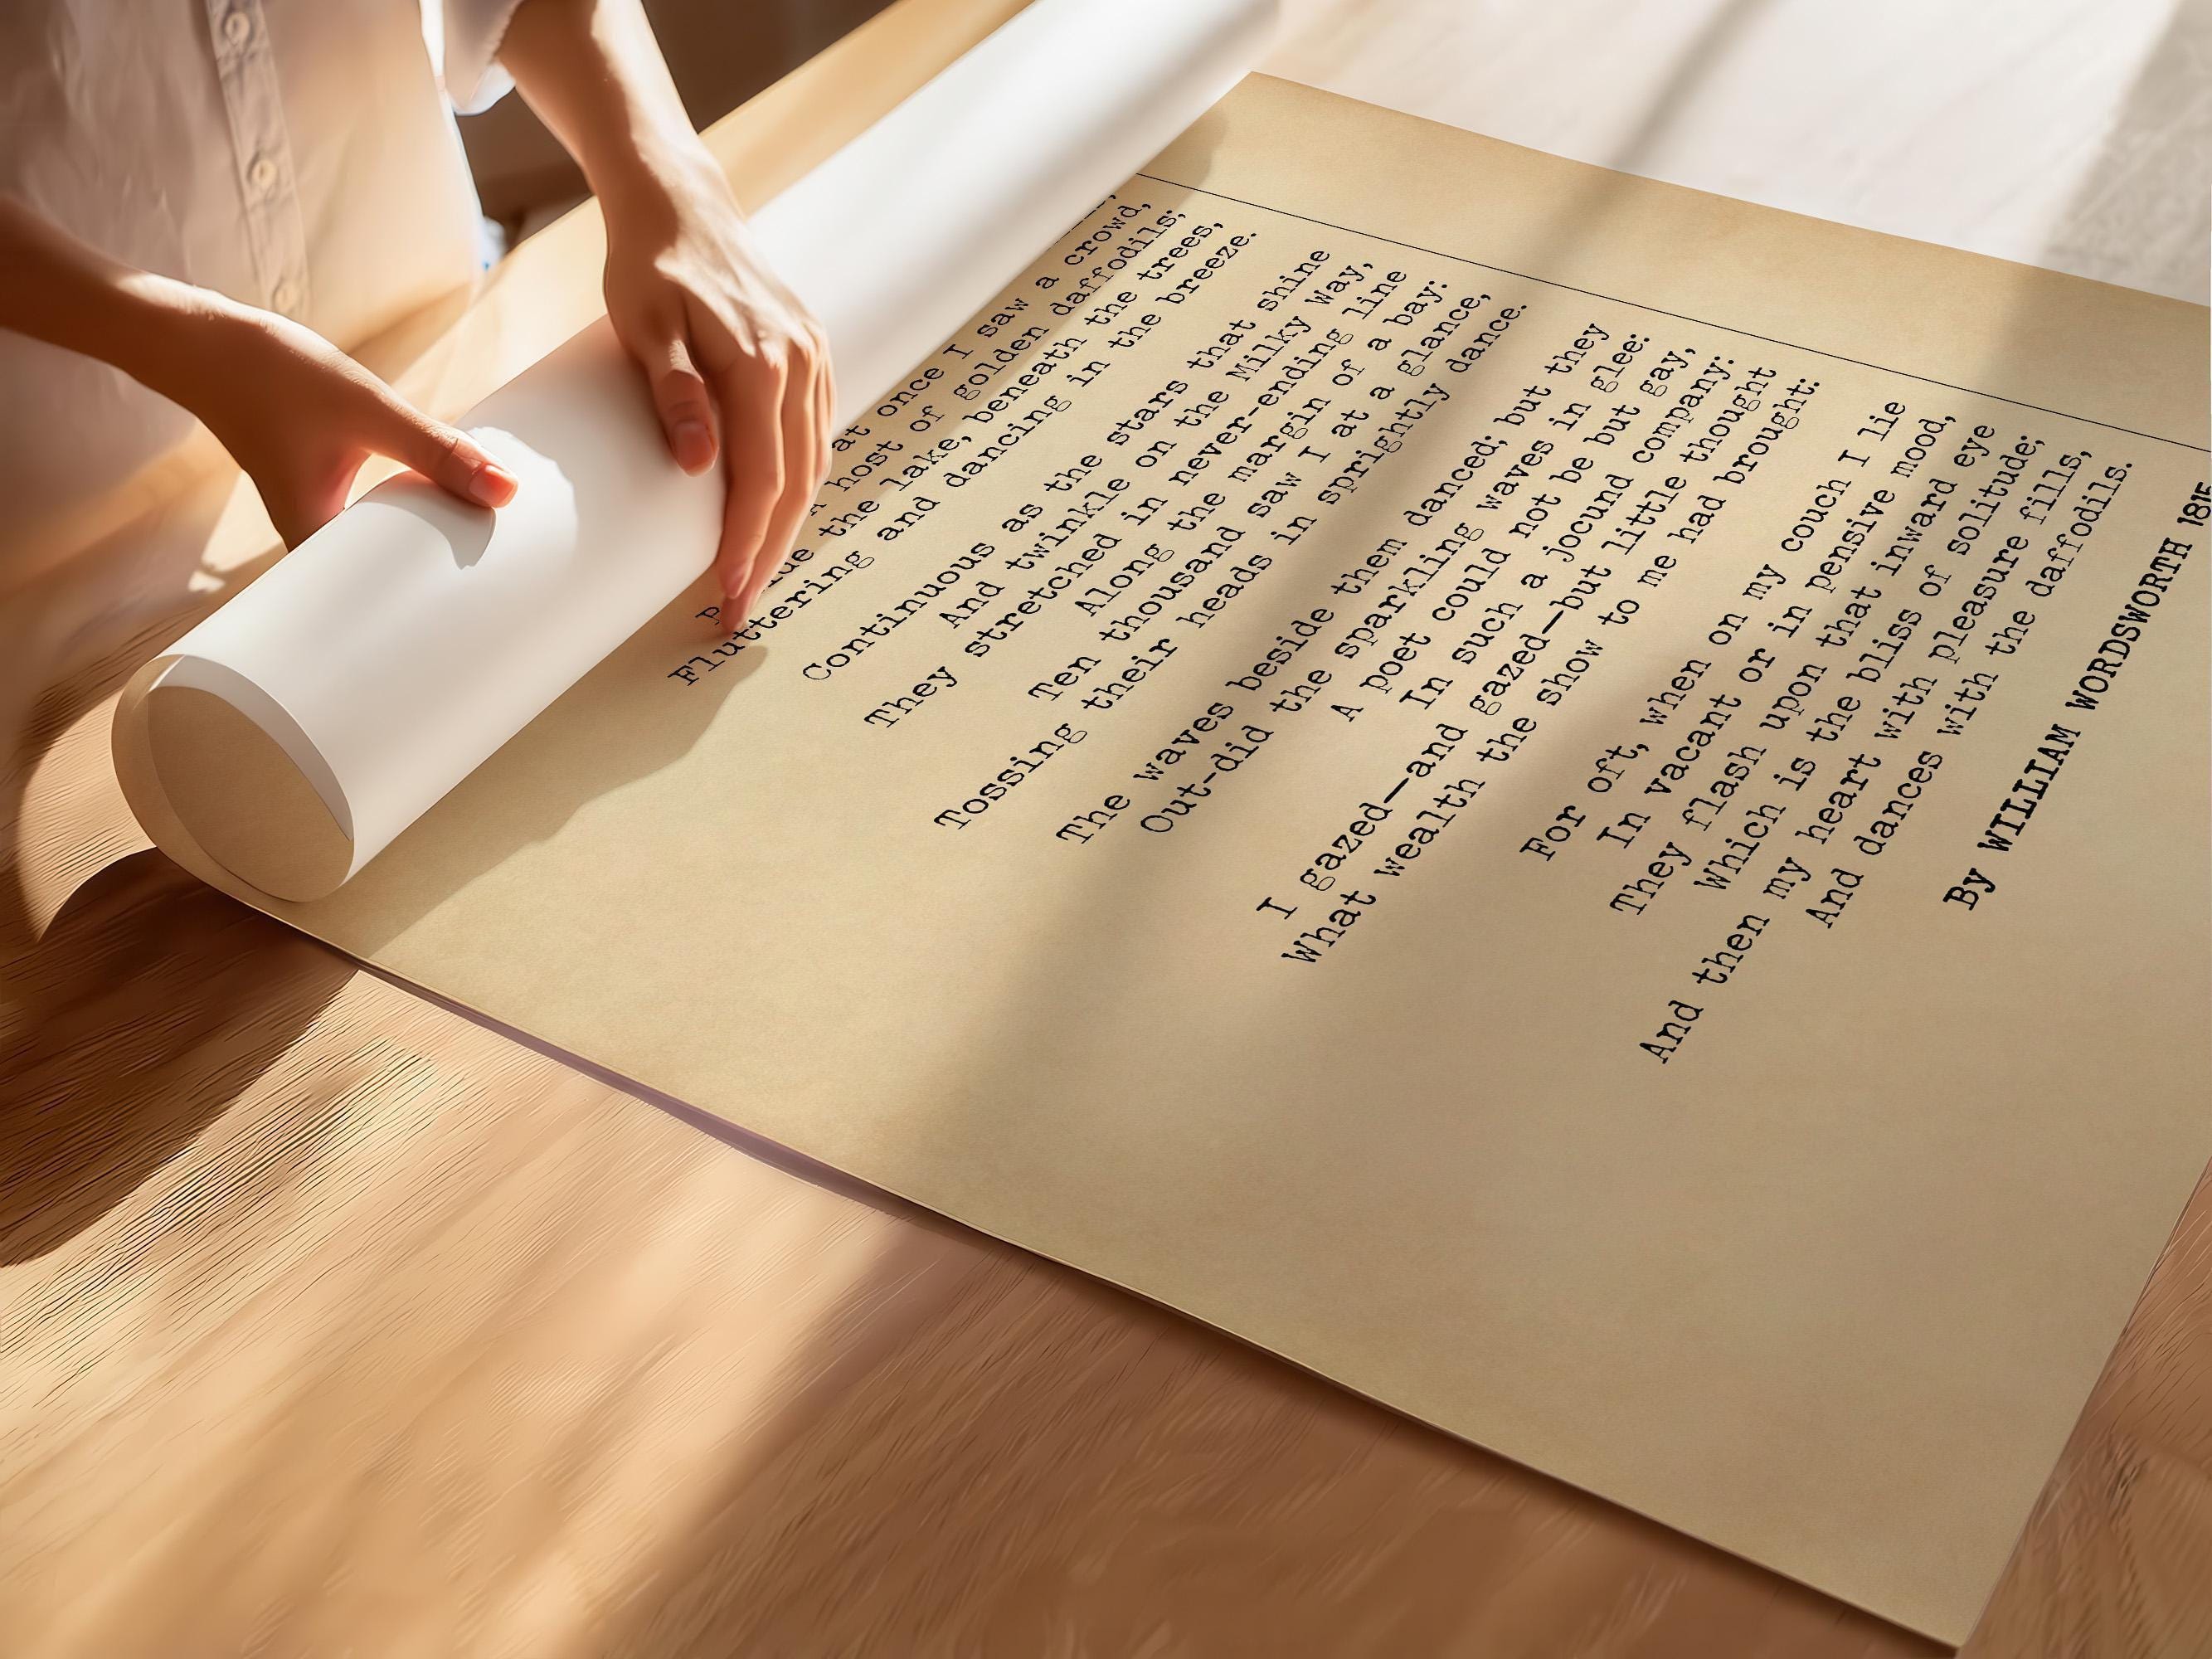 at once I saw a crowd,
host of golden daffodils;
the lake, beneath the trees,
Fluttering and dancing in the breeze.
Continuous as the stars that shine
And twinkle on the Milky Way,
They stretched in never-ending line
Along the margin of a bay:
Ten thousand saw I at a glance,
Tossing their heads in sprightly dance.
The waves beside them danced; but they
Out-did the sparkling waves in glee:
A poet could not be but gay,
In such a jocund company:
I gazed—and gazed—but little thought
What wealth the show to me had brought:
For oft, when on my couch I lie
In vacant or in pensive mood,
They flash upon that inward eye
Which is the bliss of solitude;
And then my heart with pleasure fills,
And dances with the daffodils.
By WILLIAM WORDSWORTH 1815